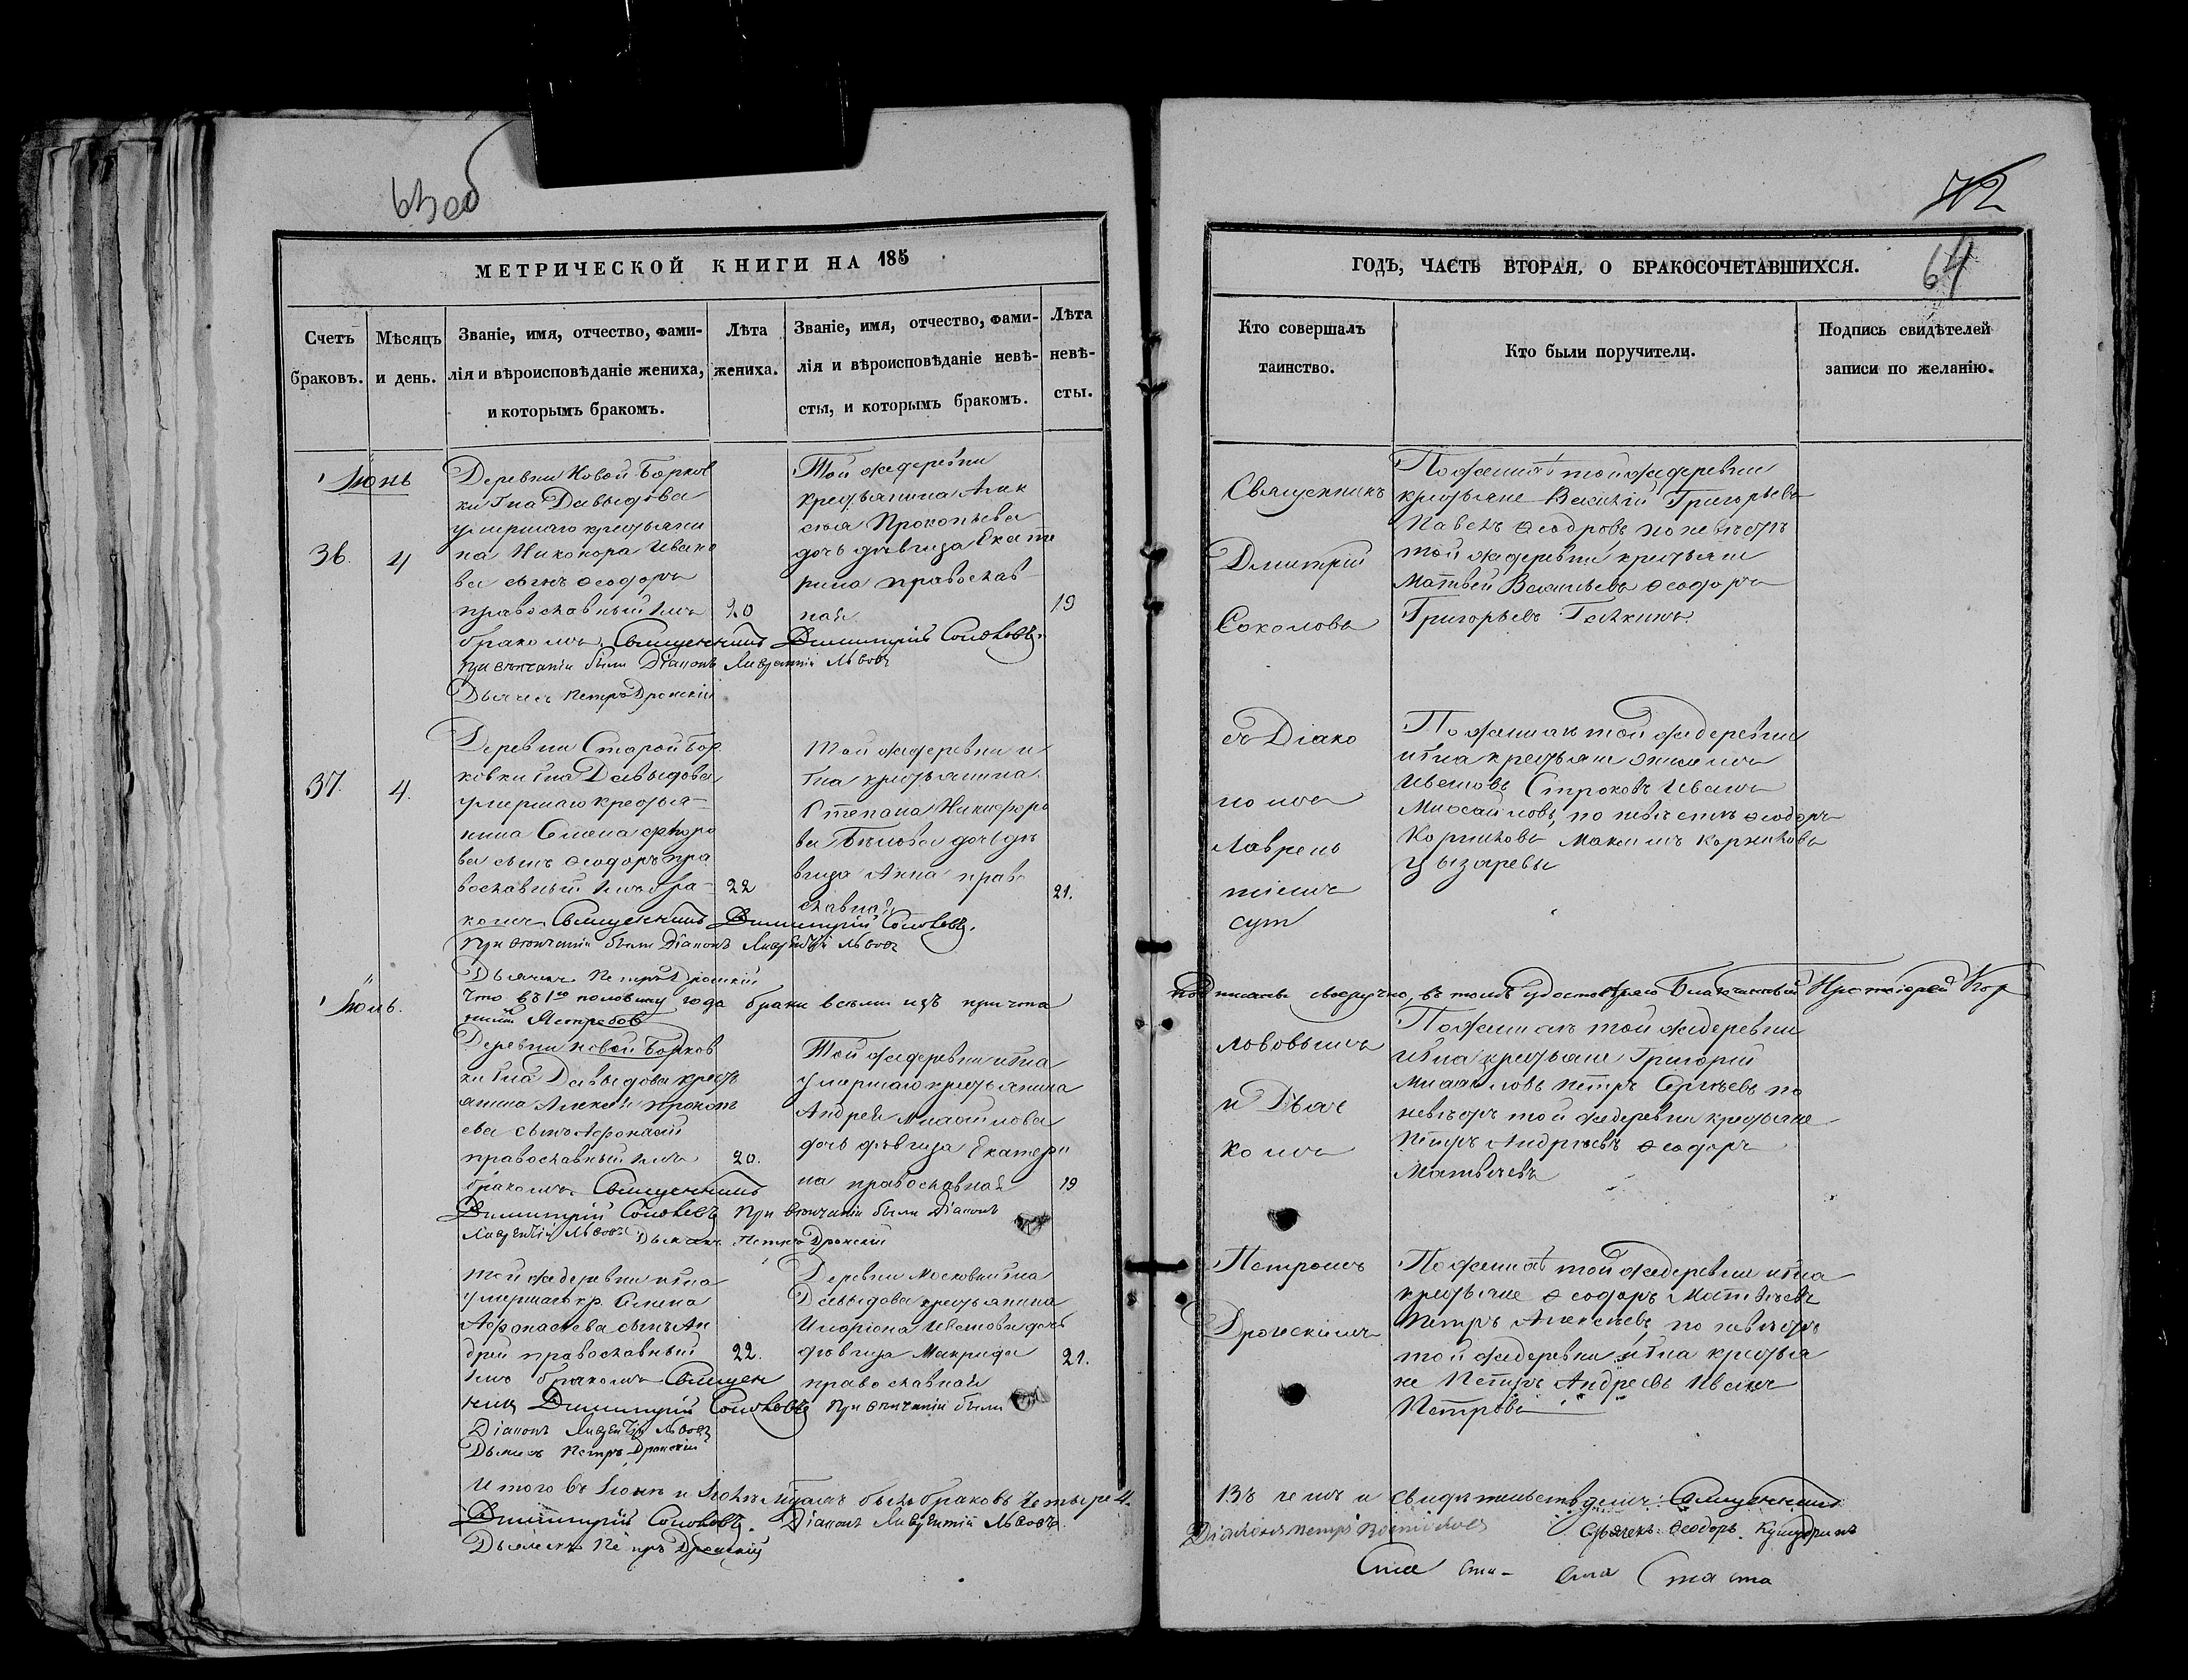 63 об
МЕТРИЧЕСКОЙ КНИГИ НА 185
Счетъ браковъ.
Мѣсяцъ и день.
Званіе, имя, отчество, фами-
лія и вѣроисповѣданіе жениха,
и которымъ бракомъ.
Лѣта
жениха.
Званіе, имя, отчество, фами-
лія и вѣроисповѣданіе невѣ-
сты, и которымъ бракомъ.
Лѣта
невѣ-
сты.
Іюнь
36.
4
Деревни Новой Борков
ки Гна Давыдова
умершаго крестьяни
на Никонора Ивано
ва сынъ Ѳеодоръ
православный 1мъ
бракомъ. Священникъ Димитрій Соколовъ.
при вѣнчаніи были Діаконъ Лаврентій Львовъ
Дьячекъ Петръ Дронскій
20
Той же деревни
крестьянина Алек
сѣя Прокопьева
дочь дѣвица Екате
рина православ
ная
19
37.
4.
Деревни Старой Бор
ковки Гна Давыдова
умершаго крестья-
нина Семена
ва сынъ Ѳеодоръ пра
вославный 1мъ бра-
комъ Священникъ Димитрій Соколовъ.
при вѣнчаніи были Діаконъ Лаврентій Львовъ
Дьячекъ Петръ Дронскій
22
Той же деревни и
Гна крестьянина
Степана Никифоро
ва Бѣлова дочь дѣ
вица Анна право
славная
21.
Іюль.
что въ 1ю половину года браки всѣми изъ причта
Ястребовъ
Деревни Новой Борков
ки Гна Давыдова кресть
янина Алексѣя Прокопь
ева сынъ Афонасій
православный 1мъ
бракомъ. Священникъ
Димитрій Соколовъ При вѣнчаніи были Діаконъ
Лаврентій Львовъ Дьячекъ Петръ Дронскій
20.
Той же деревни и Гна
умершаго крестьянина
Андрея Михайлова
дочь дѣвица Екатери
на православная
19
Той же деревни и Гна
умершаго кр. Семена
Афонасьева сынъ Ан
дрей православный
1мъ бракомъ Священ
никъ Димитрій Соколовъ При вѣнчаніи были
Діаконъ Лаврентій Львовъ
Дьячекъ Петръ Дронскій
22.
Деревни Московки Гна
Давыдова крестьянина
Иларіона Иванова дочь
дѣвица Макрида
православная
21.
Итого въ Іюнѣ и Іюлѣ мѣсяцахъ было браковъ четыре 4.
Димитрій Соколовъ. Діаконъ Лаврентій Львовъ.
Дьячекъ Петръ Дронскій
72
64
ГОДЪ, ЧАСТЬ ВТОРАЯ, О БРАКОСОЧЕТАВШИХСЯ.
Кто совершалъ
таинство.
Кто были поручители.
Подпись свидѣтелей
записи по желанію.
Священникъ
Дмитрій
Соколовъ
По женихѣ той же деревни
крестьяне Василій Григорьевъ
Павелъ Ѳеодровъ по невѣстѣ
той же деревни крестьяне
Матвей Васильевъ Ѳеодоръ
Григорьевъ Галкинъ
съ Діако
номъ
Лаврень
тіемъ
По женихѣ той же деревни
и Гна крестьяне
Ивановъ Строковъ Иванъ
Михайловъ, по невѣстѣ Ѳеодоръ
Корниловъ Максимъ Корниловъ
подписаны своеручно, въ томъ удостовѣряю Благочинный Протоіерей
Львовымъ
и Дьяч
комъ
По женихѣ той же деревни
и Гна крестьяне Григорій
Михайловъ Петръ Сергѣевъ по
невѣстѣ той же деревни крестьяне
Петръ Андреевъ Ѳеодоръ
Матвѣевъ
Петромъ
Дронскимъ
По женихѣ той же деревни и Гна
крестьяне Ѳеодоръ Матвѣевъ
Петръ Алексѣевъ, по невѣстѣ
той же деревни и Гна крестья
не Петръ Андреевъ Иванъ
Петровъ
Въ чемъ и свидѣтельствуемъ: Священникъ
Ѳеодоръ